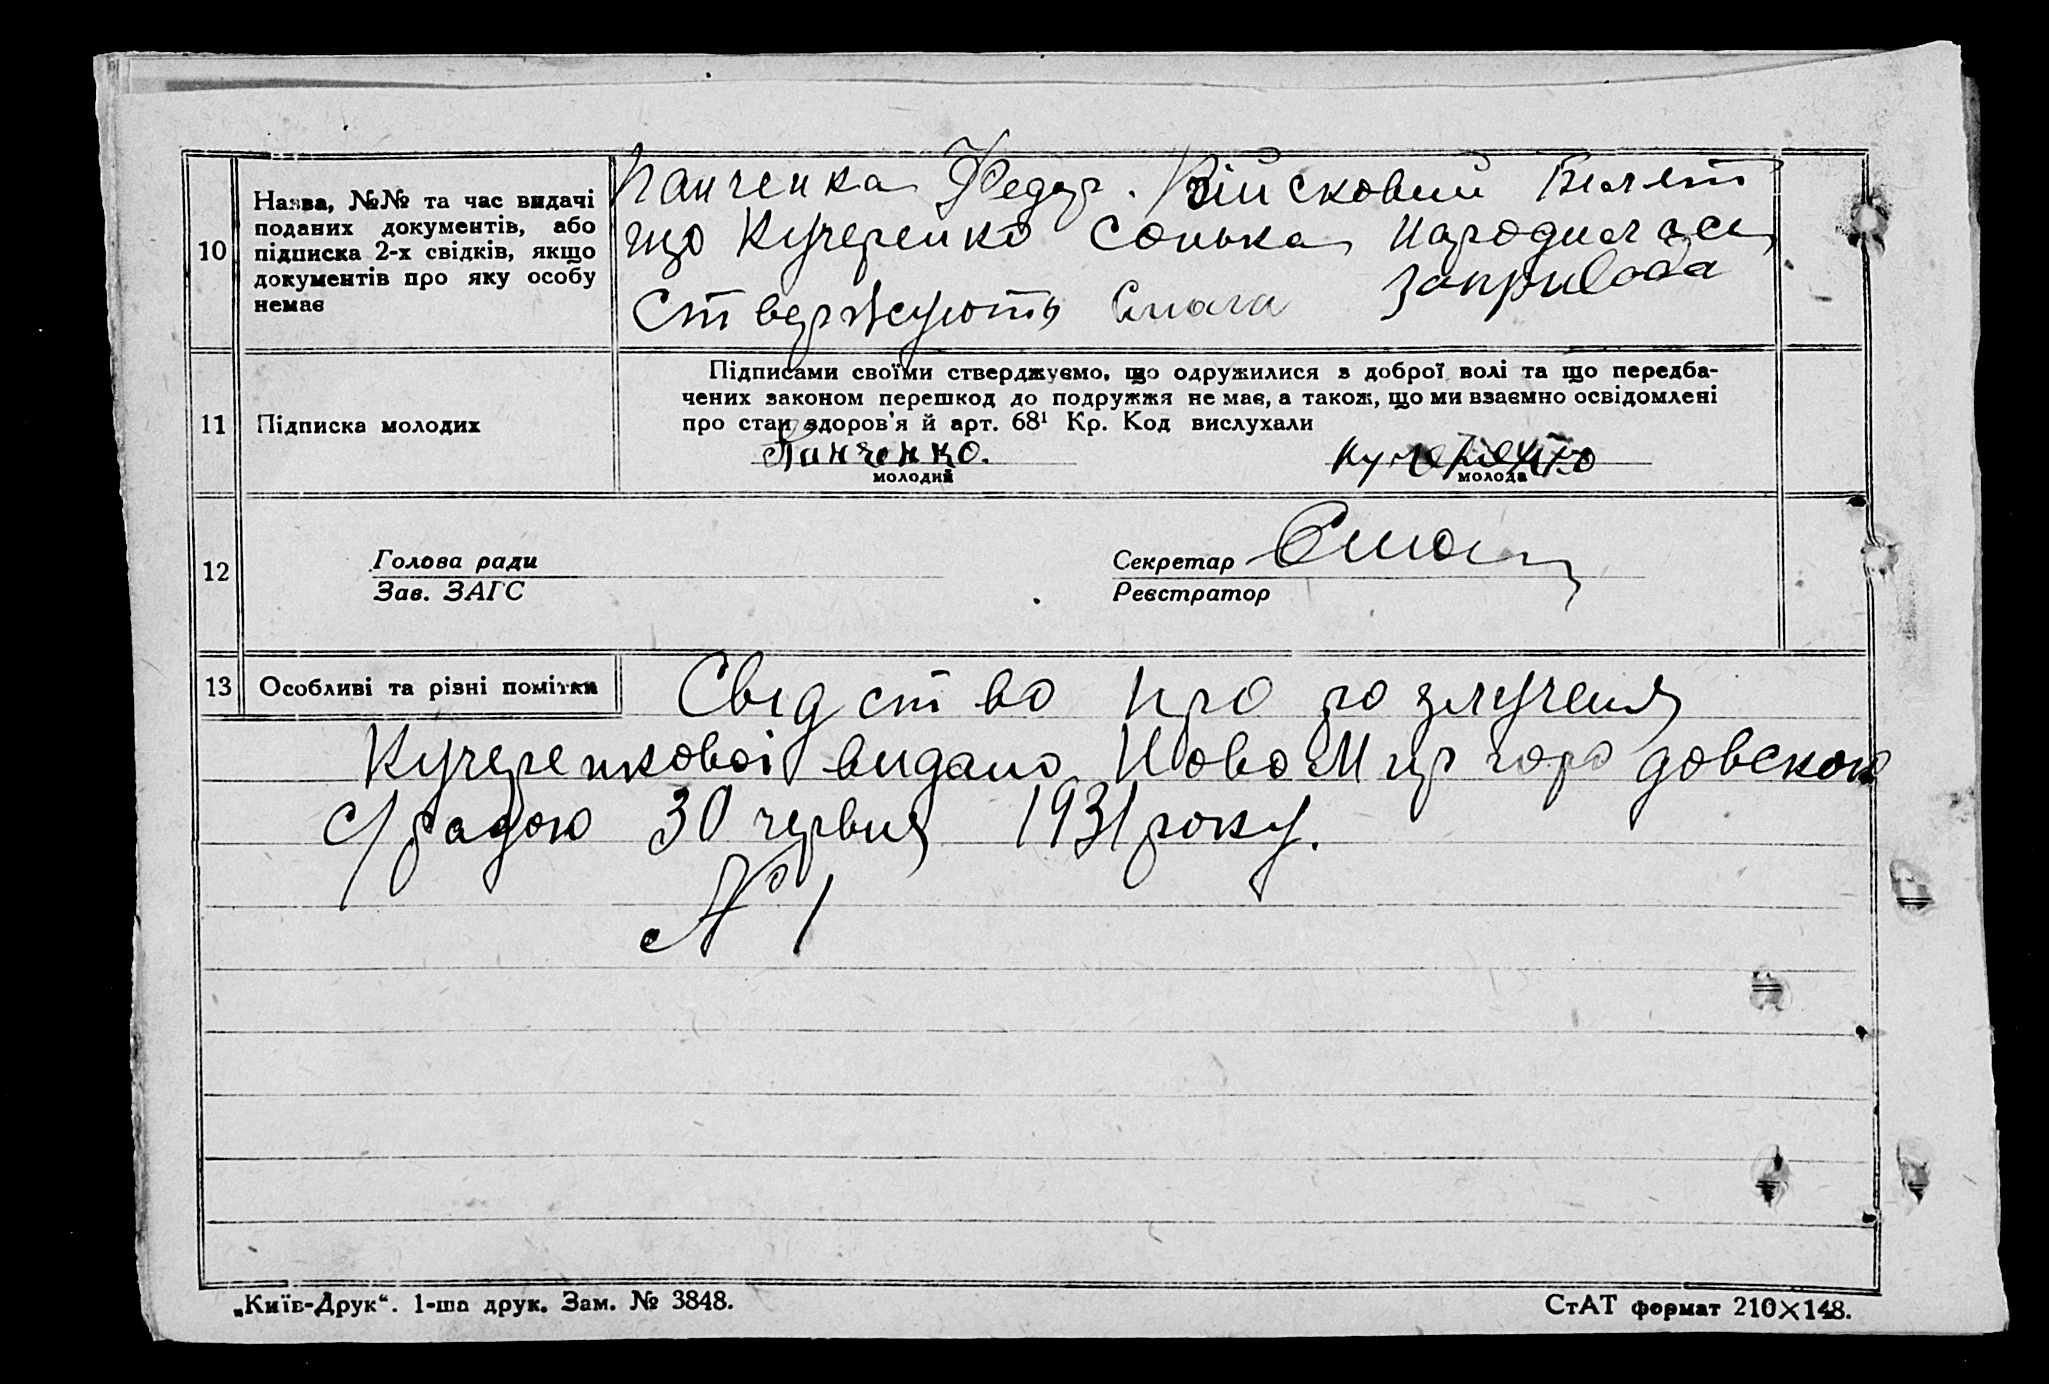 10
Назва, №№ та час видачі
поданих документів, або
підписка 2-х свідків, якщо
документів про яку особу
немає
Панченка Федор. Військовий Билет
що Кучеренко Сонька народилася
ствержують
11
Підписка молодих
Підписами своїми стверджуємо, що одружилися з доброї волі та що передба-
чених законом перешкод до подружжя не має, а також, що ми взаємно освідомлені
про стан здоров'я й арт. 68¹ Кр. Код вислухали
Панченко.
Кучеренко
молодий
молода
12
Голова ради
Зав. ЗАГС
Секретар
Реєстратор
13
Особливі та різні помітки
Свідство про розлученя
Кучеренкової видано НовоМиргородовскою
с/радою 30 червня 1931 року.
№ 1
„Київ-Друк“. 1-ша друк. Зам. № 3848.
СтАТ формат 210×148.